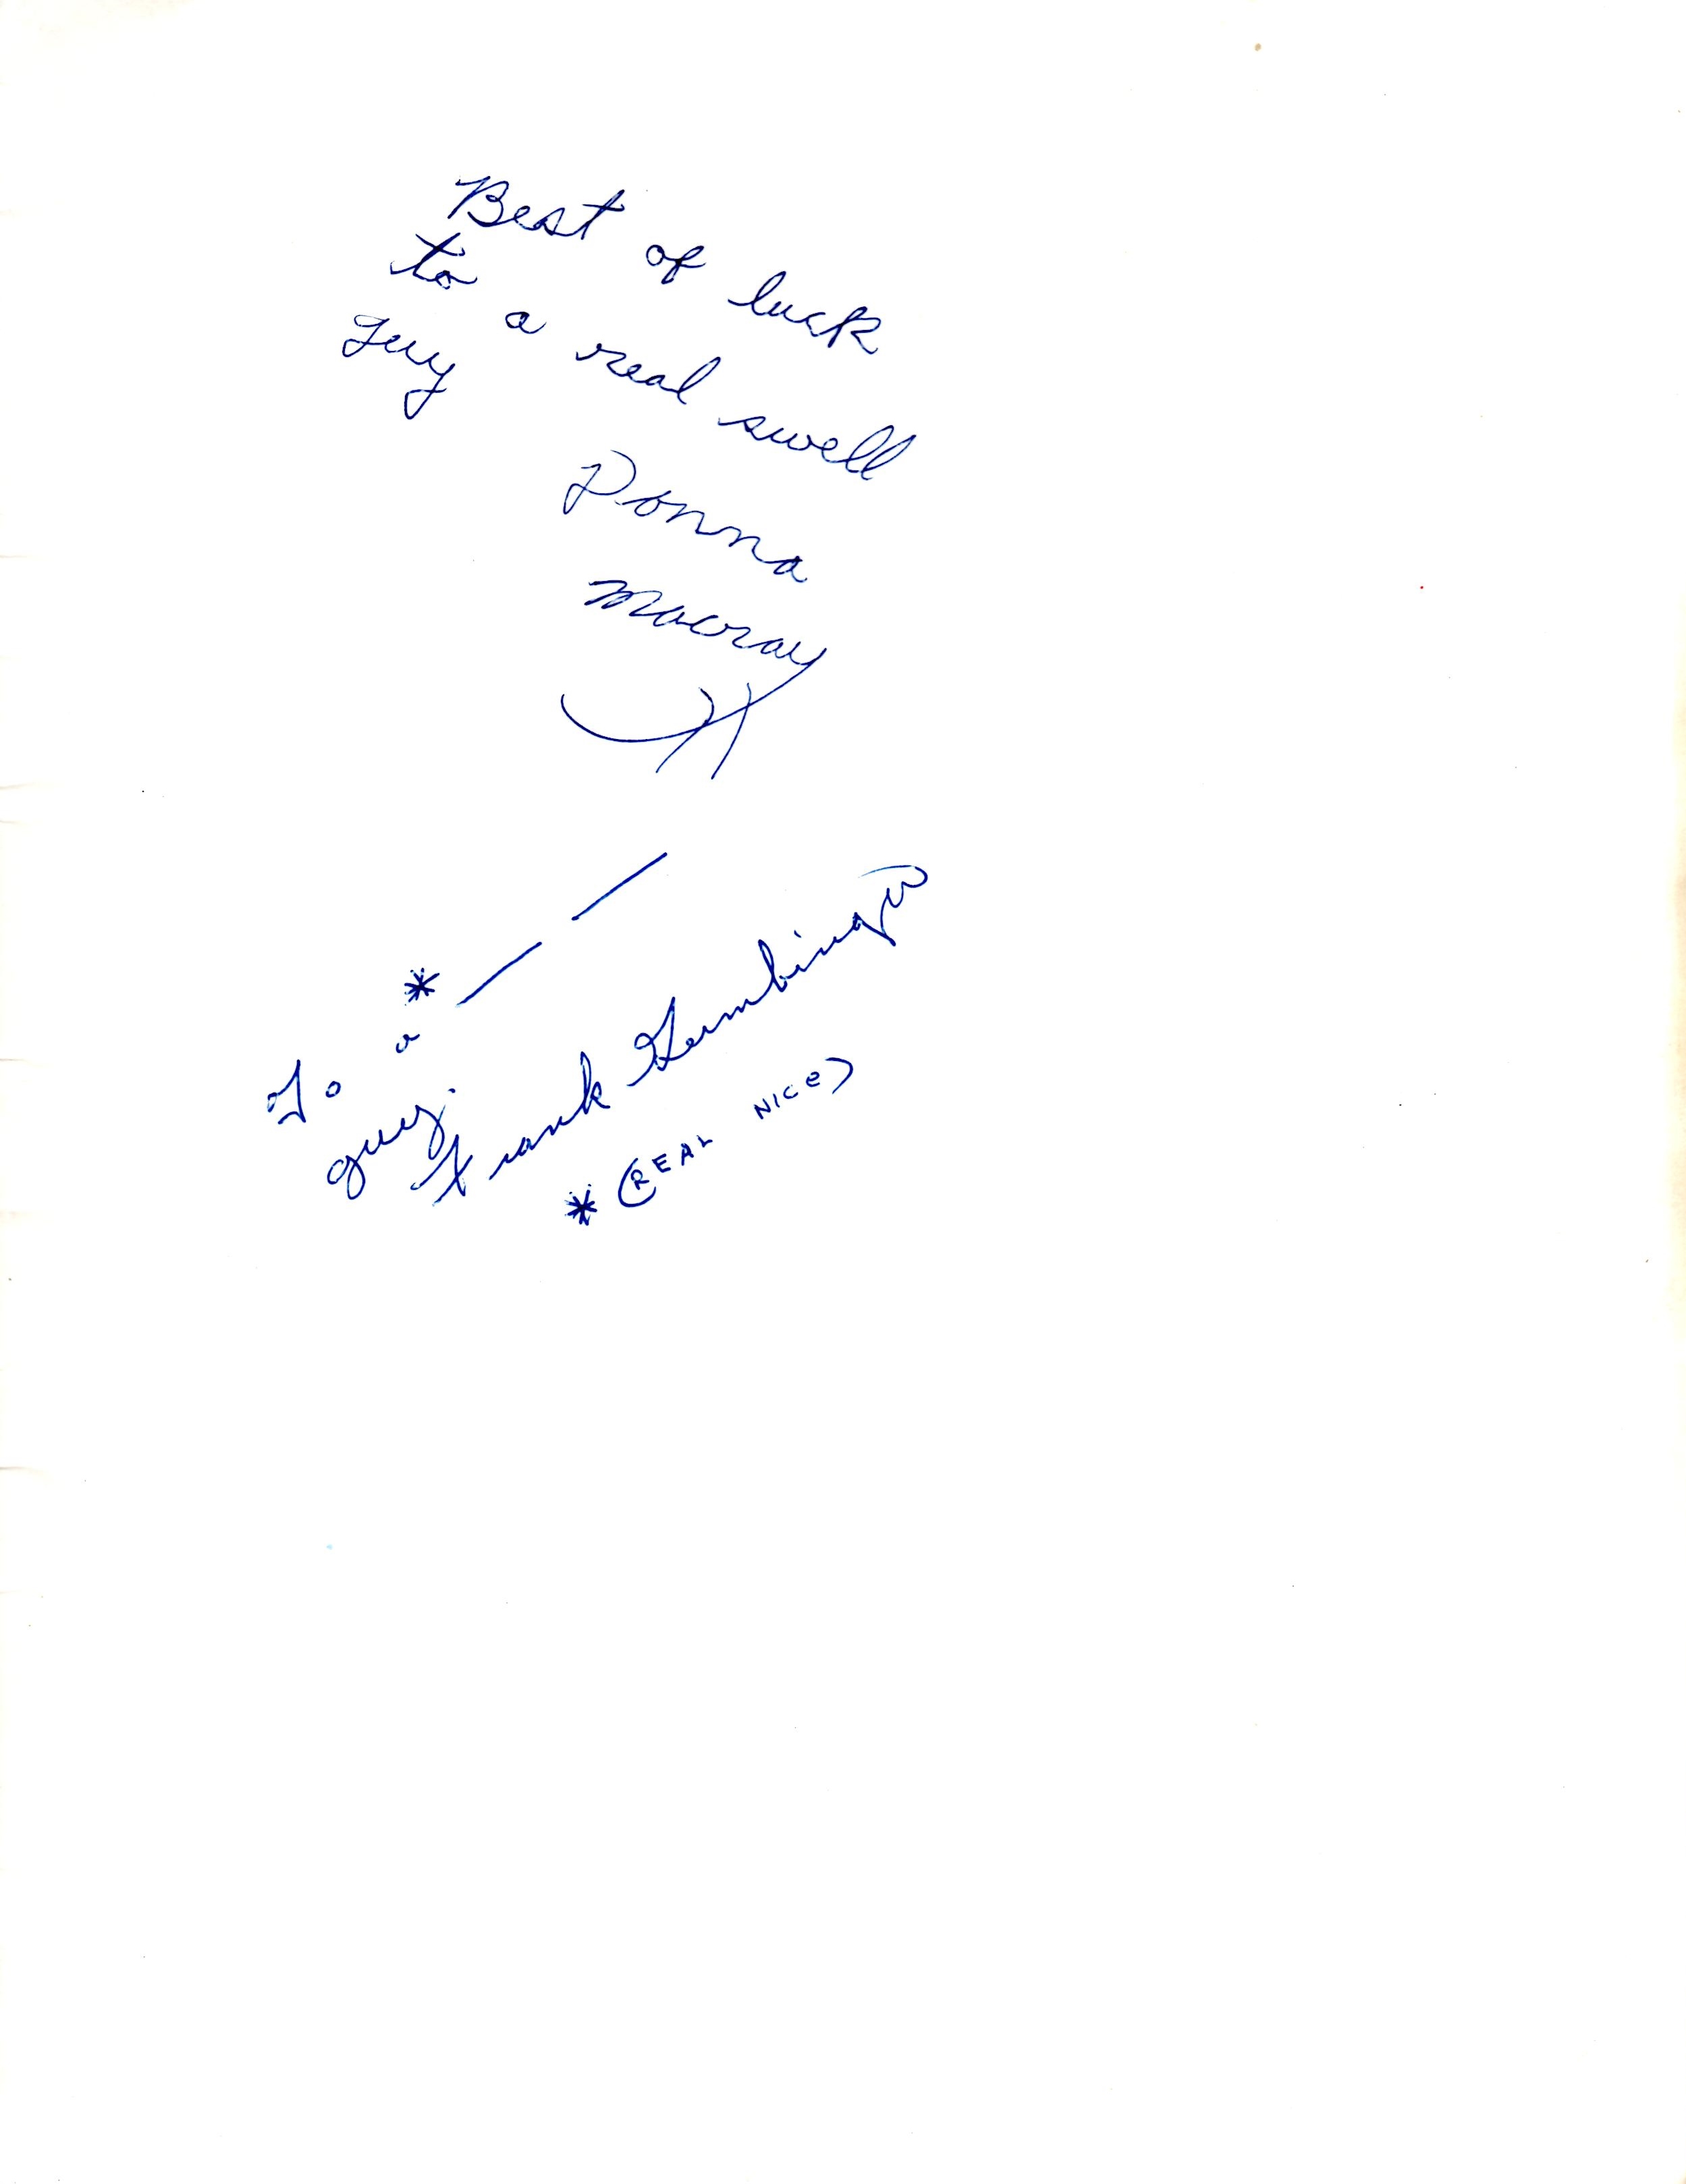 Best of luck
to a real swell
Guy
Donna
Macray
To a * — —
guy.
Frank
* (REAL NICE)